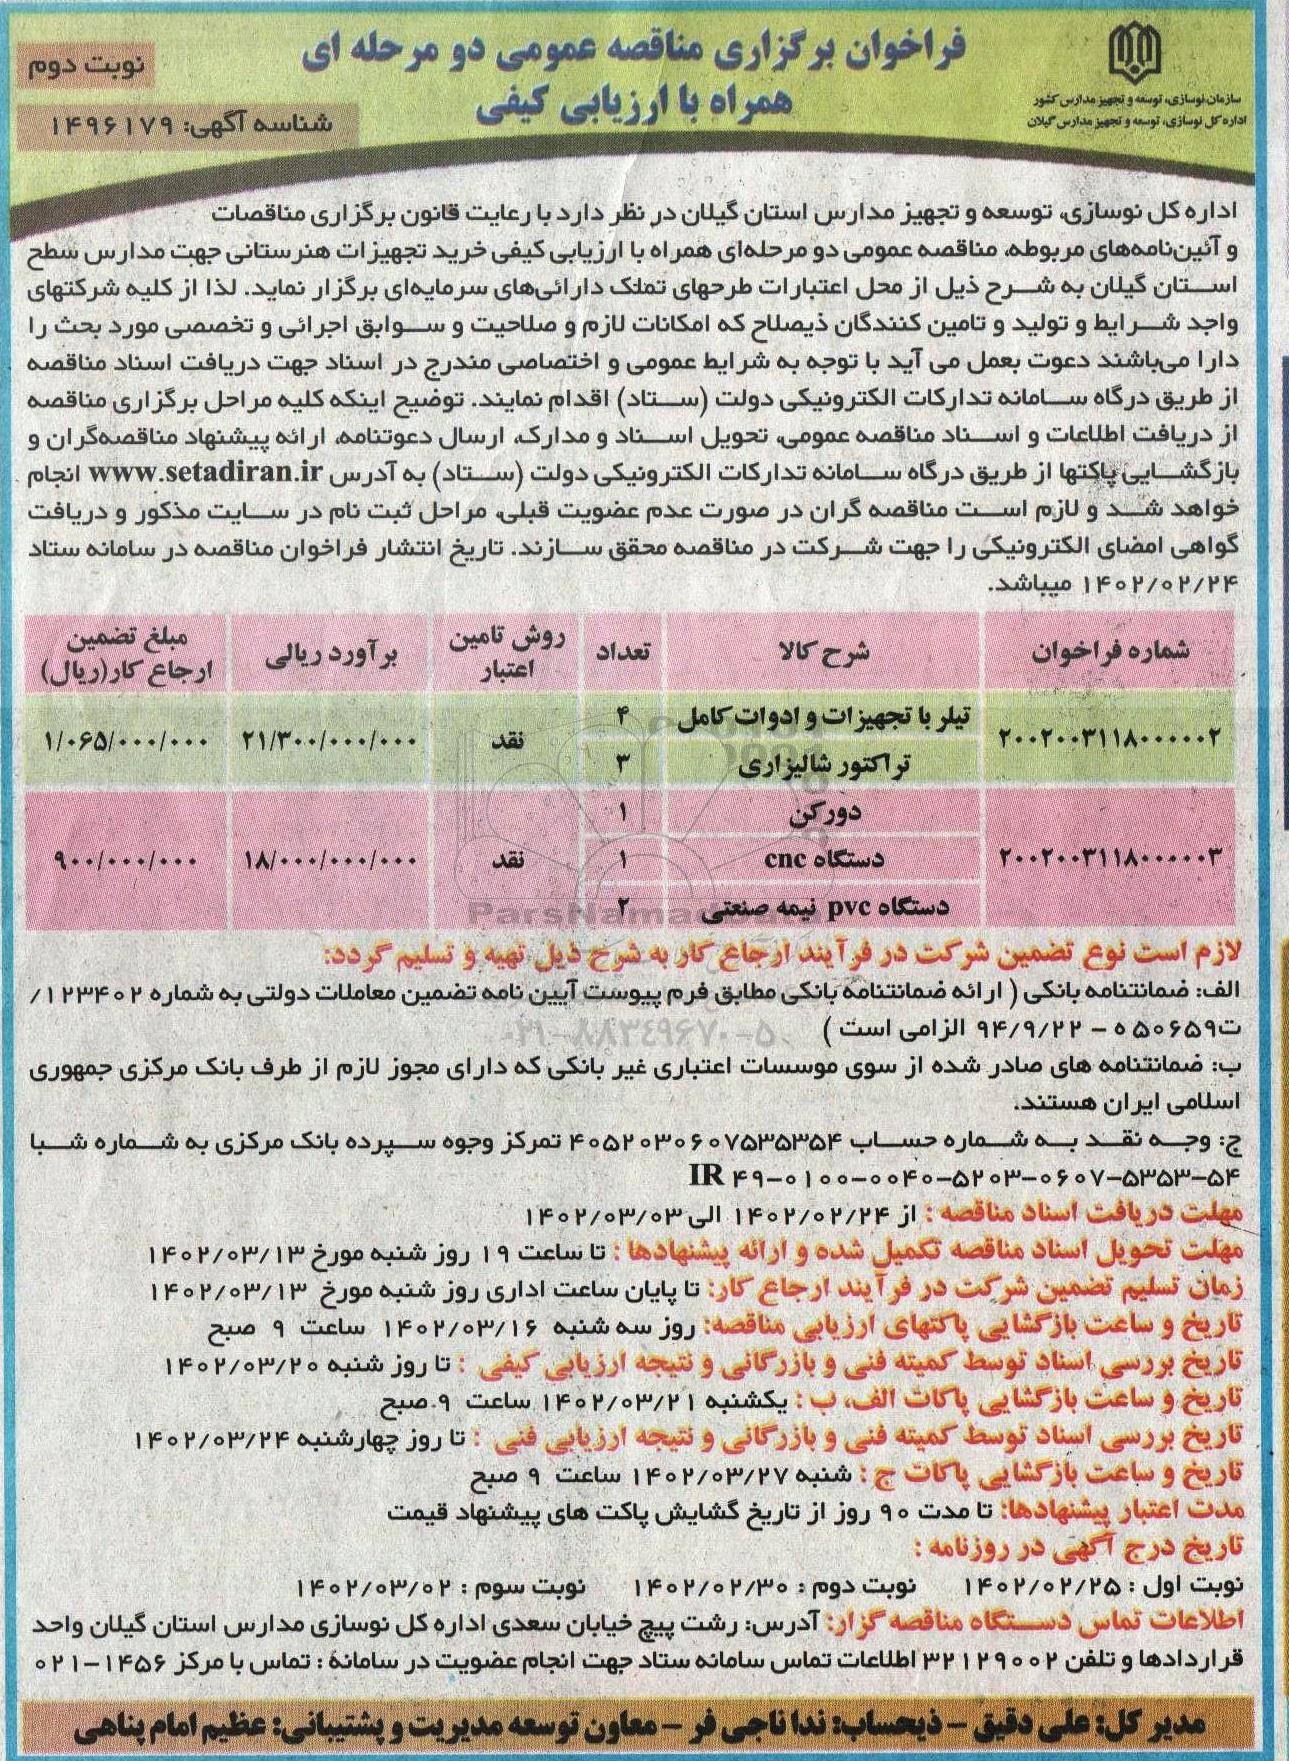 سازمان نوسازی، توسعه و تجهیز مدارس کشور
اداره کل نوسازی، توسعه و تجهیز مدارس گیلان
فراخوان برگزاری مناقصه عمومی دو مرحله ای
همراه با ارزیابی کیفی
نوبت دوم
شناسه آگهی: ۱۴۹۶۱۷۹
اداره کل نوسازی، توسعه و تجهیز مدارس استان گیلان در نظر دارد با رعایت قانون برگزاری مناقصات
و آئین‌نامه‌های مربوطه، مناقصه عمومی دو مرحله‌ای همراه با ارزیابی کیفی خرید تجهیزات هنرستانی جهت مدارس سطح
استان گیلان به شرح ذیل از محل اعتبارات طرحهای تملک دارائی‌های سرمایه‌ای برگزار نماید. لذا از کلیه شرکتهای
واجد شرایط و تولید و تامین کنندگان ذیصلاح که امکانات لازم و صلاحیت و سوابق اجرائی و تخصصی مورد بحث را
دارا می‌باشند دعوت بعمل می آید با توجه به شرایط عمومی و اختصاصی مندرج در اسناد جهت دریافت اسناد مناقصه
از طریق درگاه سامانه تدارکات الکترونیکی دولت (ستاد) اقدام نمایند. توضیح اینکه کلیه مراحل برگزاری مناقصه
از دریافت اطلاعات و اسناد مناقصه عمومی، تحویل اسناد و مدارک، ارسال دعوتنامه، ارائه پیشنهاد مناقصه‌گران و
بازگشایی پاکتها از طریق درگاه سامانه تدارکات الکترونیکی دولت (ستاد) به آدرس www.setadiran.ir انجام
خواهد شد و لازم است مناقصه گران در صورت عدم عضویت قبلی، مراحل ثبت نام در سایت مذکور و دریافت
گواهی امضای الکترونیکی را جهت شرکت در مناقصه محقق سازند. تاریخ انتشار فراخوان مناقصه در سامانه ستاد
۱۴۰۲/۰۲/۲۴ میباشد.
شماره فراخوان | شرح کالا | تعداد | روش تامین اعتبار | برآورد ریالی | مبلغ تضمین ارجاع کار(ریال)
۲۰۰۲۰۰۳۱۱۸۰۰۰۰۰۲ | تیلر با تجهیزات و ادوات کامل | ۴ | نقد | ۲۱/۳۰۰/۰۰۰/۰۰۰ | ۱/۰۶۵/۰۰۰/۰۰۰
تراکتور شالیزاری | ۳
۲۰۰۲۰۰۳۱۱۸۰۰۰۰۰۳ | دورکن | ۱ | نقد | ۱۸/۰۰۰/۰۰۰/۰۰۰ | ۹۰۰/۰۰۰/۰۰۰
دستگاه cnc | ۱
دستگاه pvc نیمه صنعتی | ۲
ParsNamad
۰۲۱-۸۸۳۴۹۶۷۰-۵
لازم است نوع تضمین شرکت در فرآیند ارجاع کار به شرح ذیل تهیه و تسلیم گردد:
الف: ضمانتنامه بانکی ( ارائه ضمانتنامه بانکی مطابق فرم پیوست آیین نامه تضمین معاملات دولتی به شماره ۱۲۳۴۰۲/
ت۵۰۶۵۹ ه – ۹۴/۹/۲۲ الزامی است )
ب: ضمانتنامه های صادر شده از سوی موسسات اعتباری غیر بانکی که دارای مجوز لازم از طرف بانک مرکزی جمهوری
اسلامی ایران هستند.
ج: وجه نقد به شماره حساب ۴۰۵۲۰۳۰۶۰۷۵۳۵۳۵۴ تمرکز وجوه سپرده بانک مرکزی به شماره شبا
IR ۴۹-۰۱۰۰-۰۰۴۰-۵۲۰۳-۰۶۰۷-۵۳۵۳-۵۴
مهلت دریافت اسناد مناقصه : از ۱۴۰۲/۰۲/۲۴ الی ۱۴۰۲/۰۳/۰۳
مهلت تحویل اسناد مناقصه تکمیل شده و ارائه پیشنهادها : تا ساعت ۱۹ روز شنبه مورخ ۱۴۰۲/۰۳/۱۳
زمان تسلیم تضمین شرکت در فرآیند ارجاع کار: تا پایان ساعت اداری روز شنبه مورخ ۱۴۰۲/۰۳/۱۳
تاریخ و ساعت بازگشایی پاکتهای ارزیابی مناقصه: روز سه شنبه ۱۴۰۲/۰۳/۱۶ ساعت ۹ صبح
تاریخ بررسی اسناد توسط کمیته فنی و بازرگانی و نتیجه ارزیابی کیفی : تا روز شنبه ۱۴۰۲/۰۳/۲۰
تاریخ و ساعت بازگشایی پاکات الف، ب : یکشنبه ۱۴۰۲/۰۳/۲۱ ساعت ۹ صبح
تاریخ بررسی اسناد توسط کمیته فنی و بازرگانی و نتیجه ارزیابی فنی : تا روز چهارشنبه ۱۴۰۲/۰۳/۲۴
تاریخ و ساعت بازگشایی پاکات ج : شنبه ۱۴۰۲/۰۳/۲۷ ساعت ۹ صبح
مدت اعتبار پیشنهادها: تا مدت ۹۰ روز از تاریخ گشایش پاکت های پیشنهاد قیمت
تاریخ درج آگهی در روزنامه :
نوبت اول : ۱۴۰۲/۰۲/۲۵ نوبت دوم : ۱۴۰۲/۰۲/۳۰ نوبت سوم : ۱۴۰۲/۰۳/۰۲
اطلاعات تماس دستگاه مناقصه گزار: آدرس: رشت پیچ خیابان سعدی اداره کل نوسازی مدارس استان گیلان واحد
قراردادها و تلفن ۳۲۱۲۹۰۰۲ اطلاعات تماس سامانه ستاد جهت انجام عضویت در سامانه : تماس با مرکز ۱۴۵۶-۰۲۱
مدیر کل: علی دقیق – ذیحساب: ندا ناجی فر – معاون توسعه مدیریت و پشتیبانی: عظیم امام پناهی